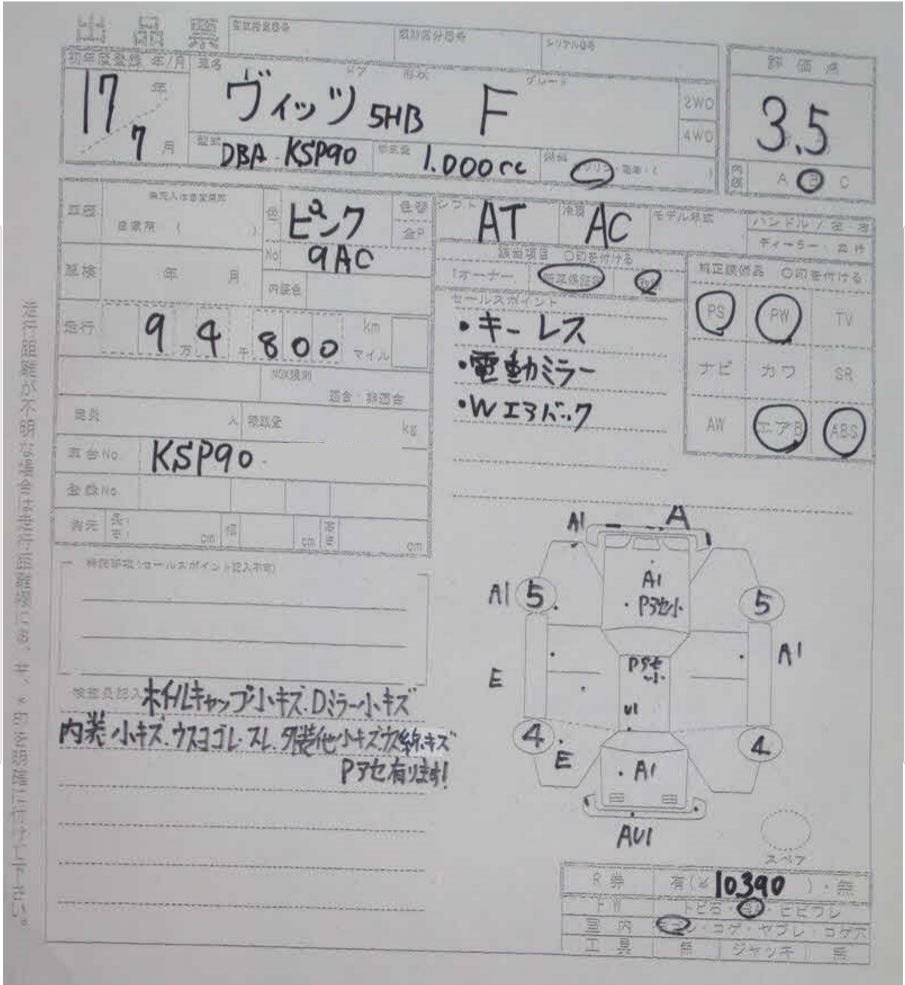 出品票
型式指定番号 類別区分番号 シリアル番号
初年度登録 年/月 車名 ドア 形状 グレード 評価点
17年 ヴィッツ 5HB F 2WD 3.5
7月 4WD
型式 DBA-KSP90 排気量 1.000cc 燃料 内装 A B C
車歴 色 ピンク 色替 シフト AT 冷房 AC モデル年式 ハンドル
自家用 No 9AC ディーラー
車検 年 月 内装色 該当項目 ○印を付ける 純正装備品 ○印を付ける
1オーナー 新車保証書
走行 94,800 km マイル セールスポイント PS PW TV
・キーレス
NOX規制 ・電動ミラー ナビ カワ SR
適合・非適合 ・Wエアバック
定員 人 積載量 kg AW エアB ABS
車台No. KSP90
登録No.
諸元 長さ cm 幅 cm 高さ cm
A1 A
A1
A1 5 Pアセ小 5
Pアセ小 A1
E
U1
4 E 4
A1
AU1
検査員記入 ホイルキャップ小キズ.Dミラー小キズ
内装小キズ.ウスヨゴレ.スレ.外装他小キズ.ウス線キズ
Pアセ有ります!
スペア
R券 有(¥10,390)・無
FW トビ石・A・ヒビワレ
室内 コゲ・ヤブレ・コゲ穴
工具 無 ジャッキ 無
走行距離が不明な場合は走行距離欄に